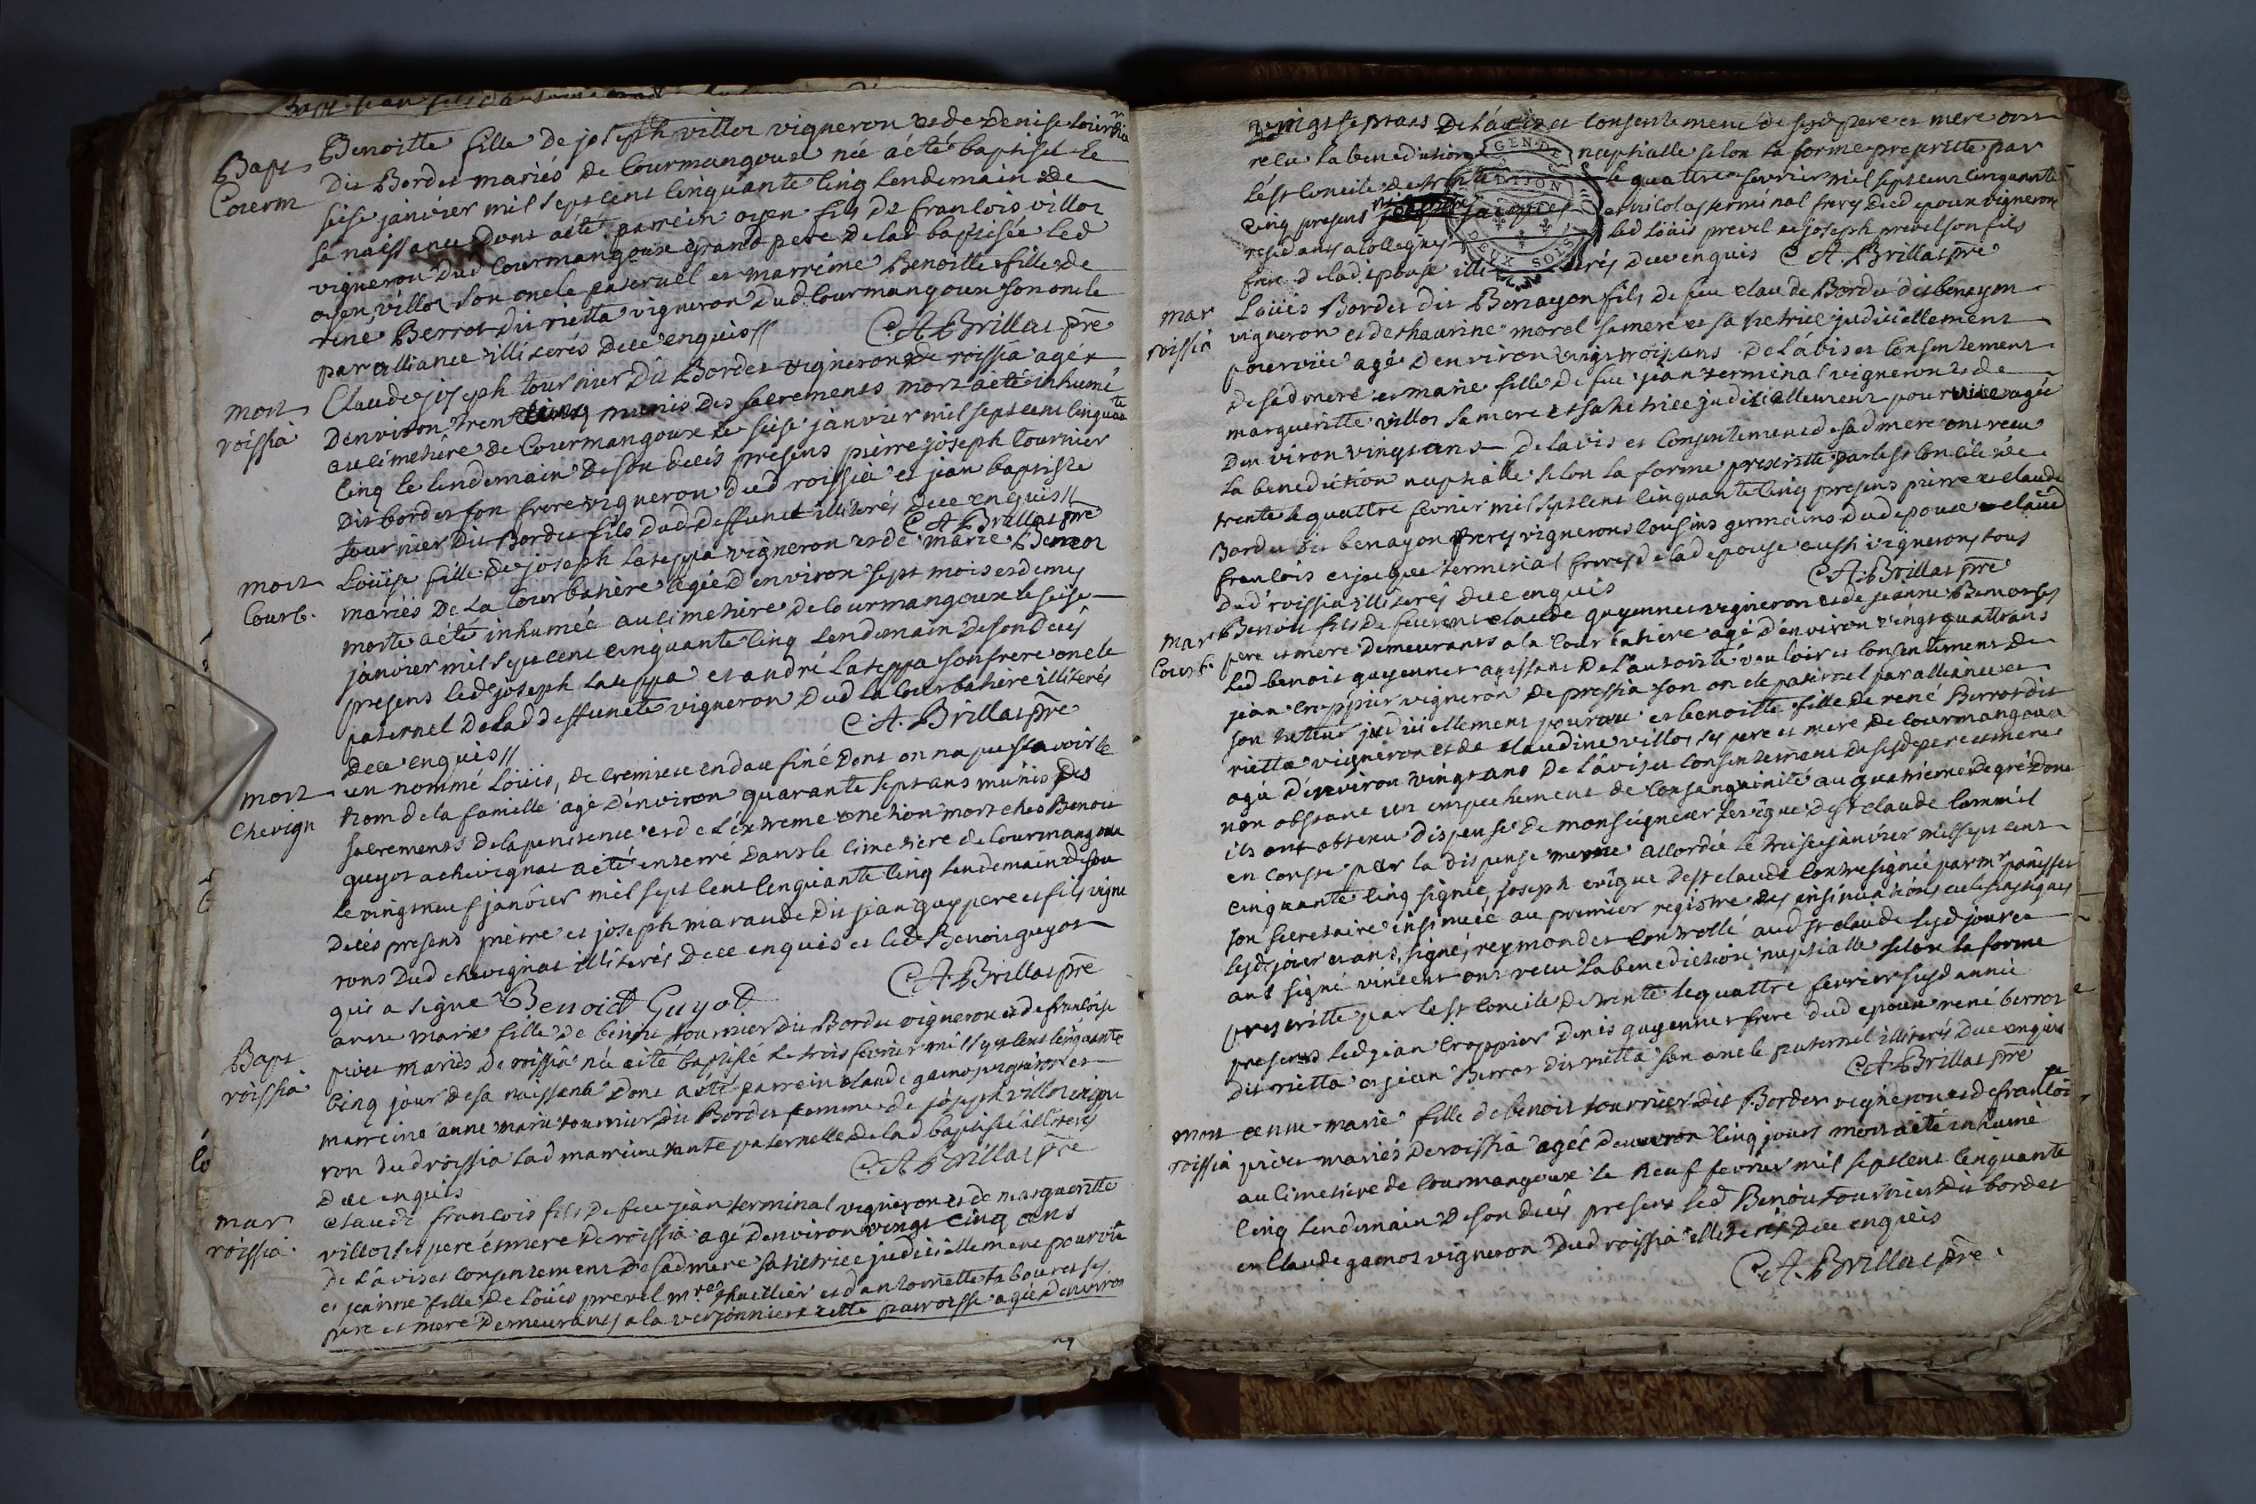 Bapt
Courm
Benoitte fille de joseph villoz vigneron et de denise tournier
dit Bordet mariés de Courmangoux née a eté baptisée le
seise janvier mil sept cent cinquante cinq lendemain de
sa naissance dont a eté parrein oyen fils de francois villoz
vigneron dud Courmangoux grand pere de lad baptisée led
oyen villoz son oncle paternel et marreine Benoitte fille de
rené Berrot dit rietta vigneron dud Courmangoux son oncle
par alliance illiterés de ce enquis //
C A Brillat pre
mort
roissia
Claude joseph tournier dit Bordet vigneron de roissia agé
d'environ trente cinq munis des sacrements mort a eté inhumé
au cimetiére de Courmangoux le seise janvier mil sept cent cinquante
cinq le lendemain de son decés presens pierre joseph tournier
dit bordet son frere vigneron dud roissia et jean baptiste
tournier dit Bordet fils dud deffunct illiterés de ce enquis //
C A Brillat pre
mort
Courb.
Loüise fille de joseph lateppa vigneron et de marie Benoz
mariés de la Courbatiere agée d'environ sept mois et demy
morte a eté inhumée au cimetiére de Courmangoux le seise
janvier mil sept cent cinquante cinq lendemain de son decés
presens led joseph lateppa et andré lateppa son frere oncle
paternel de lad deffuncte vigneron dud la Courbatiere illiterés
de ce enquis //
C A. Brillat pre
mort
Chevign
un nommé Loüis, de cremieu en daufiné dont on na pu scavoir le
nom de la famille agé d'environ quarante sept ans munis des
sacrements de la penitence et de l'extreme onction mort ches Benoit
guyot a chevignat a eté enterré dans le cimetiére de Courmangoux
le vingt neuf janvier mil sept cent cinquante cinq lendemain de son
decés presens pierre et joseph maraude dit jean guy pere et fils vigne
rons dud chevignat illiterés de ce enquis et led Benoit guyot
qui a signé Benoict Guyot
C A. Brillat pre
Bapt
roissia
anne marie fille de benoit tournier dit Bordet vigneron et de francoise
pivet mariés de roissia née a eté baptisé le trois fevrier mil sept cent cinquante
cinq jour de sa naissance dont a eté parrein claude gamot vigneron et
marreine anne marie tournier dit Bordet femme de joseph villoz vigne
ron dud roissia lad marreine tante paternelle de lad baptisée illiterés
de ce enquis
C A Brillat pre
mar
roissia
Claude francois fils de feu jean terminal vigneron et de margueritte
villoz ses pere et mere de roissia agé d'environ vingt cinq ans
de l'avis et consentement de sad mere sa tutrice judiciellement pourvüe
et jeanne fille de loüis prevel mre thuillier et d'antoinette tabouret ses
pere et mere demeurants a la verjonniere cette parroisse agée d'environ
vingt sept ans de l'avis et consentement de sesd pere et mere ont
recu la benediction nuptialle selon la forme prescritte par
le st Concile de trente le quattre fevrier mil sept cent cinquante
cinq presens jacques et nicolas terminal freres dud epoux vignerons
residants a Collegnes led loüis prevel et joseph prevel son fils
frere de lad epouse illiterés de ce enquis C A. Brillat pre
GEN. DE
DIJON
DEUX SOLS
mar
roissia
Loüis Bordet dit Benayon fils de feu claude Bordet dit benayon
vigneron et de thaurine morel sa mere et sa tutrice judiciellement
pourvüe agé d'environ vingt trois ans de l'avis et consentement
de sad mere et marie fille de feu jean terminal vigneron et de
margueritte villoz sa mere et sa tutrice judiciellement pourvüe agée
d'environ vingt ans de l'avis et consentement de sad mere ont recu
la benediction nuptialle selon la forme prescritte par le st concile de
trente le quattre fevrier mil sept cent cinquante cinq presens pierre et claude
Bordet dit benayon freres vignerons cousins germains dud epoux claud
francois et jacque terminal freres de lad epouse aussi vignerons tous
dud roissia illiterés de ce enquis
C A. Brillat pre
mar
Courb.
Benoit fils de feu rené claude guyennet vigneron et de jeanne Bemont ses
pere et mere demeurants a la Courbatiere agé d'environ vingt quattre ans
led benoit guyennet agissant de l'autorité vouloir et consentement de
jean croppier vigneron de pressia son oncle paternel par alliance et
son tuteur judiciellement pourvu et benoitte fille de rené Berrot dit
rietta vigneron et de claudine villoz ses pere et mere de Courmangoux
agée d'environ vingt ans de l'avis et consentement de sesd pere et mere
non obstant un empechement de consanguinité au quatriéme degré dont
ils ont obtenu dispense de monseigneur l'evêque de st claude comme il
en conste par la dispense meme accordée le treise janvier mil sept cent
cinquante cinq signée, joseph evêque de st claude contresignée par mr panisset
son secretaire insinuée au premier registre des insinuations eclesiastiques
lesd jour et ans, signé, reymondet controllé aud st claude lesd jour et
ans signé vincent ont recu la benediction nuptialle selon la forme
prescritte par le st Concile de trente le quattre fevrier susd année
presens led jean Croppier denis guyennet frere dud epoux rené berrot
dit rietta et jean Berrot dit rietta son oncle paternel illiterés de ce enquis
C A Brillat pre
mort
roissia
anne marie fille de benoit tournier dit Bordet vigneron et de francoise
pivet mariés de roissia agée d'environ cinq jours mort a eté inhumé
au cimetiére de Courmangoux le neuf fevrier mil sept cent cinquante
cinq lendemain de son decés presens led Benoit tournier dit bordet
et Claude gamot vigneron dud roissia illiterés de ce enquis
C A. Brillat pre